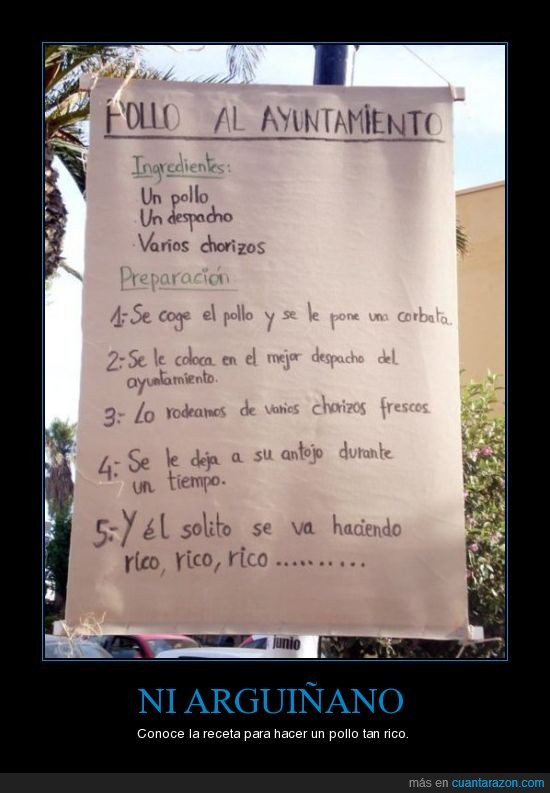 POLLO AL AYUNTAMIENTO
Ingredientes:
Un pollo
.Un despacho
.Varios chorizos
Preparación
1.-Se coge el pollo y se le pone una corbata.
2.-Se le coloca en el mejor despacho del
ayuntamiento.
3.- Lo rodeamos de varios chorizos frescos.
4.- Se le deja a su antojo durante
un tiempo.
5.-Y él solito se va haciendo
rico, rico, rico ..........
junio
NI ARGUIÑANO
Conoce la receta para hacer un pollo tan rico.
más en cuantarazon.com